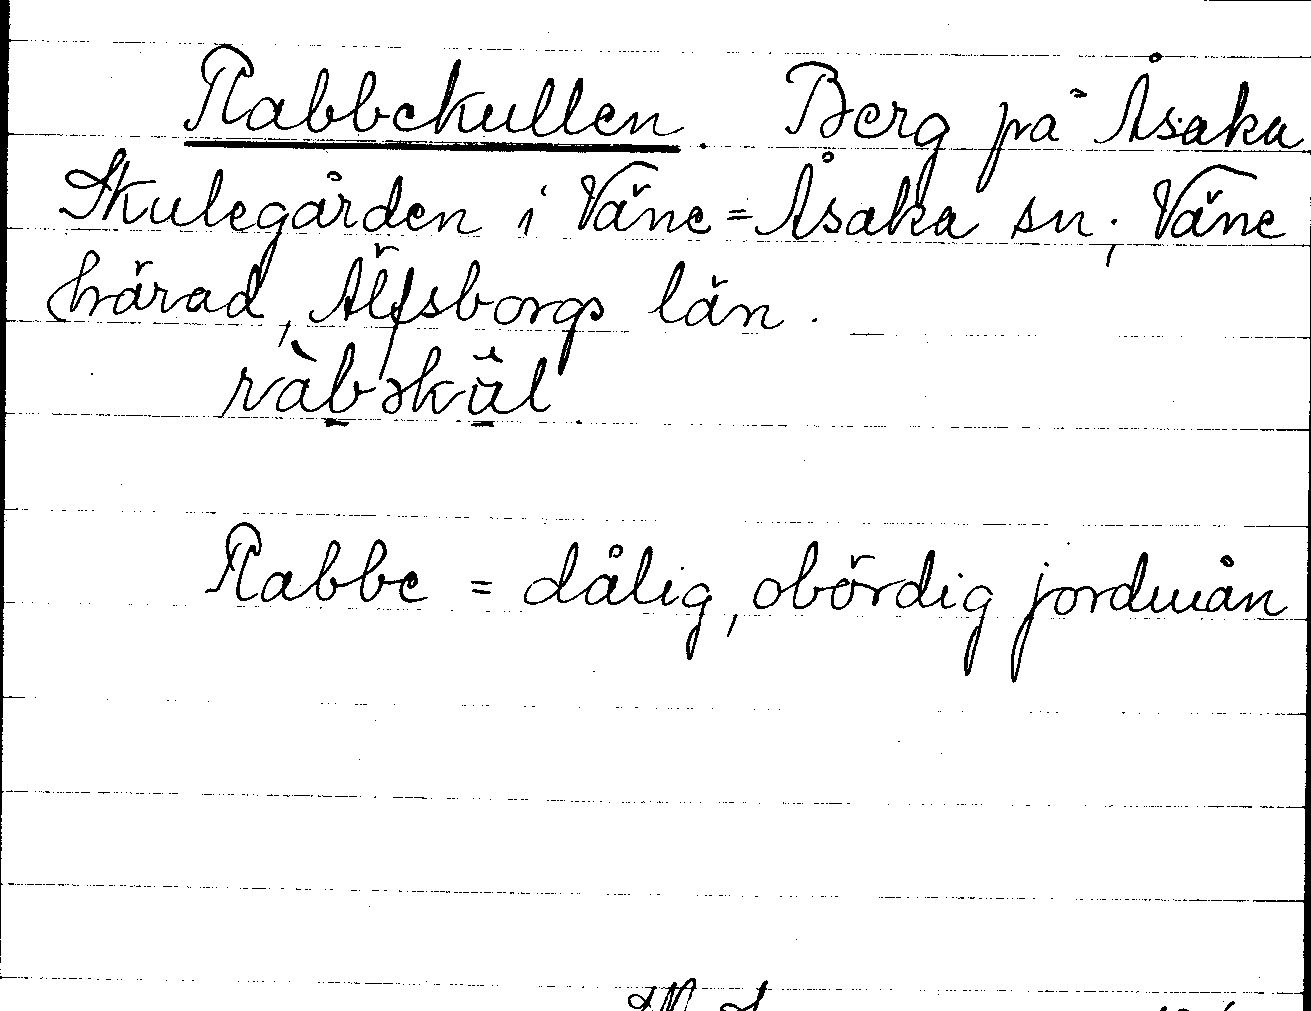 Rabbekullen. Berg på Åsaka
Skulegården i Väne=Åsaka sn; Väne
härad, Älfsborgs län.
Rabbe = dålig, obördig jordmån